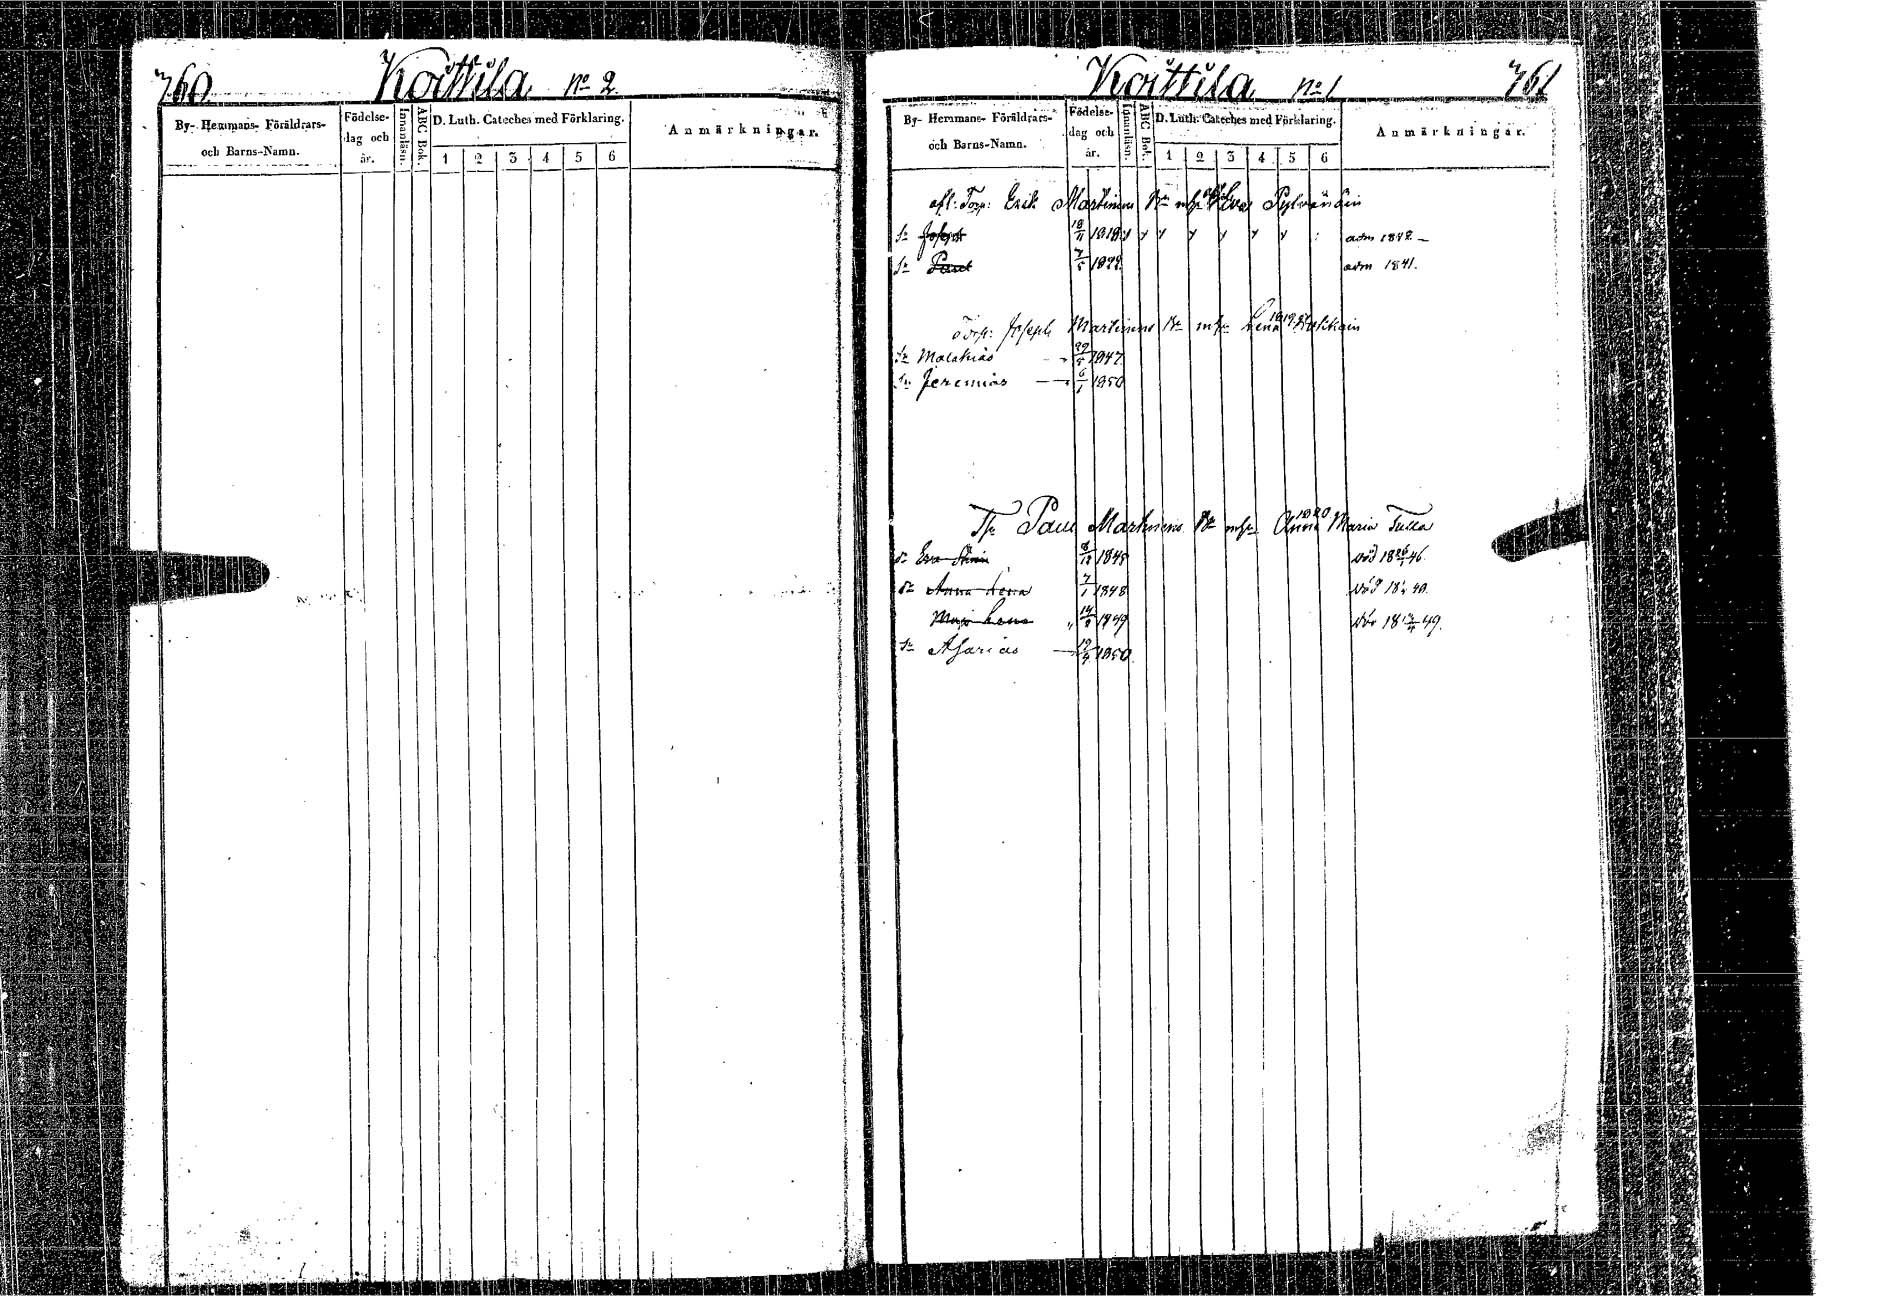 760 Koittila No 2.
By- Hemmans- Föräldrars- och Barns-Namn. Födelse- dag och år. Innanläsn. ABC Bok. D. Luth. Cateches med Förklaring. Anmärkningar.
1 2 3 4 5 6
Koittila No 1 761
By- Hemmans- Föräldrars- och Barns-Namn. Födelse- dag och år. Innanläsn. ABC Bok. D. Luth. Cateches med Förklaring. Anmärkningar.
1 2 3 4 5 6
afl: Torp: Erik Martinens Br m hu Eva Pylvänäin
Sn Joseph 18/11 1818 y y y y y y y adm 1842.
Sn Paul 7/5 1822. adm 1841.
Torp: Joseph Martinens Br m hu Lena
Sn Malakias 29/5 1847
Sn Jeremias 6/1 1850
Paul Martinens Br m hu Anna 1820 Maria Tulla
dr Eva 1845 död 46.
dr Anna Lena 7/1 1848
Maja Lena 14/2 1849 49.
Sn Asarias 19/4 1850